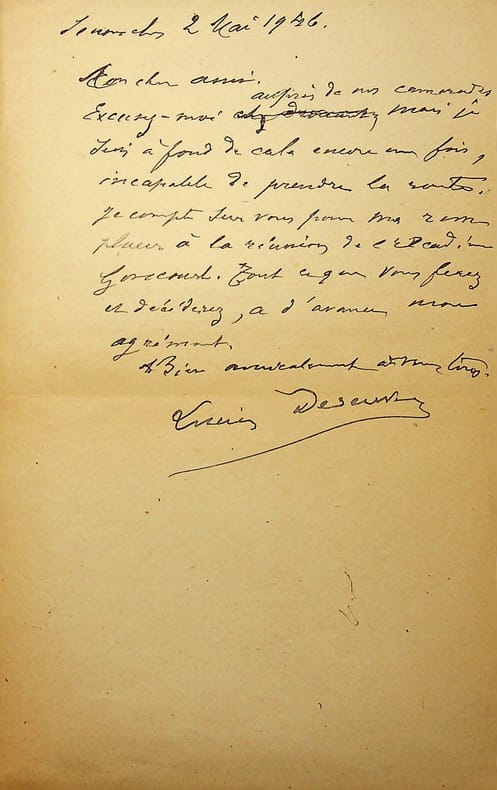 Senonches 2 Mai 1946.
Mon cher ami.
auprès de nos camarades
Excusez-moi chez Drouant, mais je
suis à fond de cale encore une fois,
incapable de prendre la route.
Je compte sur vous pour me rem
placer à la réunion de l'Académie
Goncourt. Tout ce que vous ferez
et déciderez, a d'avance mon
agrément.
Bien amicalement à vous tous.
Lucien Descaves